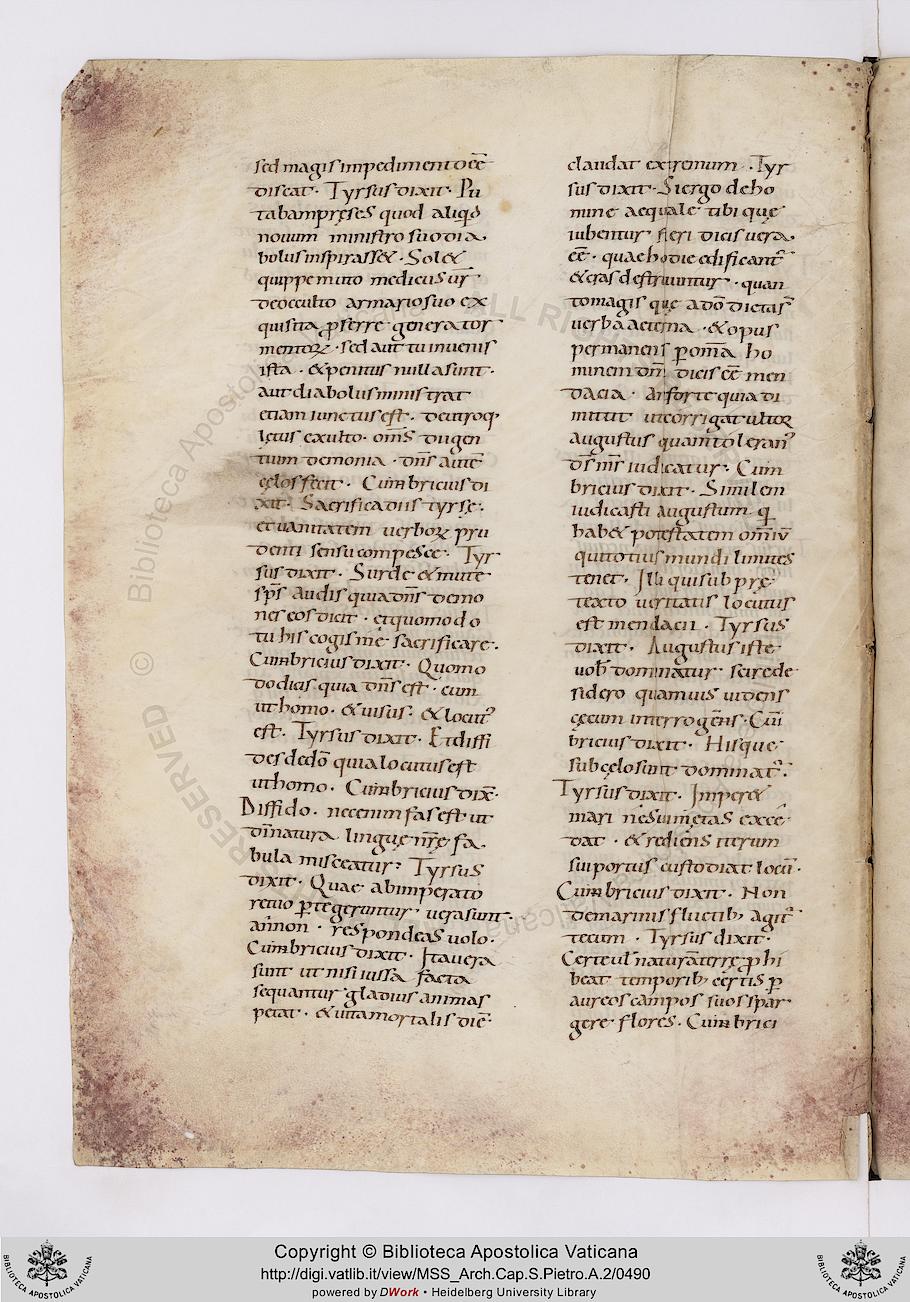 sed magis impedimento eē
discat · Tyrsus dixit · Pu
tabam pręses quod aliqđ
nouum ministro suo dia
bolus inspirasset · Solet
quippe muto medicus ūr
de occulto armario suo ex
quisita proferre generator
mentorꝝ · sed aut tu inuenis
ista · et penitus nulla sunt ·
aut diabolus ministrat
etiam iunctus est · de utroq;
lętus exulto · om̄s di gen
tium demonia · dn̄s autē
cęlos fecit · Cumbricius di
xit · Sacrifica diis tyrse ·
et uanitatem uerborꝝ pru
denti sensu compesce · Tyr
sus dixit · Surde et mute
sp̄s Audis quia dn̄s demo
nes eos dicit · et quomodo
tu his cogis me sacrificare ·
Cumbricius dixit · Quomo
do dicis quia dn̄s est · cum
ut homo · et uisus · et locut᷒
est · Tyrsus dixit · Et diffi
des dedō quia locutus est
ut homo · Cumbricius dix̄ ·
Diffido · nec enim fas est ut
diī natura linguę nrę̄ fa
bula misceatur ? Tyrsus
dixit · Quae ab imperato
re tuo ꝑtegeruntur uera sunt ·
an non · respondeas uolo ·
Cumbricius dixit · Ita uera
sunt ut nisi iussa facta
sequantur gladius animas
petat · et uita mortalis diē
claudat extremum · Tyr
sus dixit · Si ergo de ho
mine aequale tibi quę
iubentur fieri dicis uera
eē · quae hodie edificant᷒
et cras destruuntur · quan
to magis que a dō dictas̄
uerba aeterna · et opus
permanens ꝑ om̄a ho
minem dn̄i dicis eē men
dacia · An forte quia di
mittit ut corrigat ultorꝝ
augustus quam toleran᷒
dī nr̄i iudicatur ? Cum
bricius dixit · Similem
iudicasti augustum · q
habet potestatem om̄iū
qui totius mundi limites
tenet · Illi qui sub prę
texto ueritatis locutus
est mendacii · Tyrsus
dixit · Augustus iste
uob dominatur scire de
sidero quamuis uidens
cęcum interrogens · Cum
bricius dixit · Hisque
sub cęlo sunt dominat᷒ ·
Tyrsus dixit · Imperet
mari ne suum etas excē
dat · et rediens iterum
sui portus custodiat locū ·
Cumbricius dixit · Non
de marinis fluctib; agit᷒
tecum · Tyrsus dixit ·
Certe ul̄ naturā terrę ꝓhi
beat temporib; certis ꝑ
aureos campos suos spar
gere flores · Cumbrici
Copyright © Biblioteca Apostolica Vaticana
http://digi.vatlib.it/view/MSS_Arch.Cap.S.Pietro.A.2/0490
powered by DWork • Heidelberg University Library